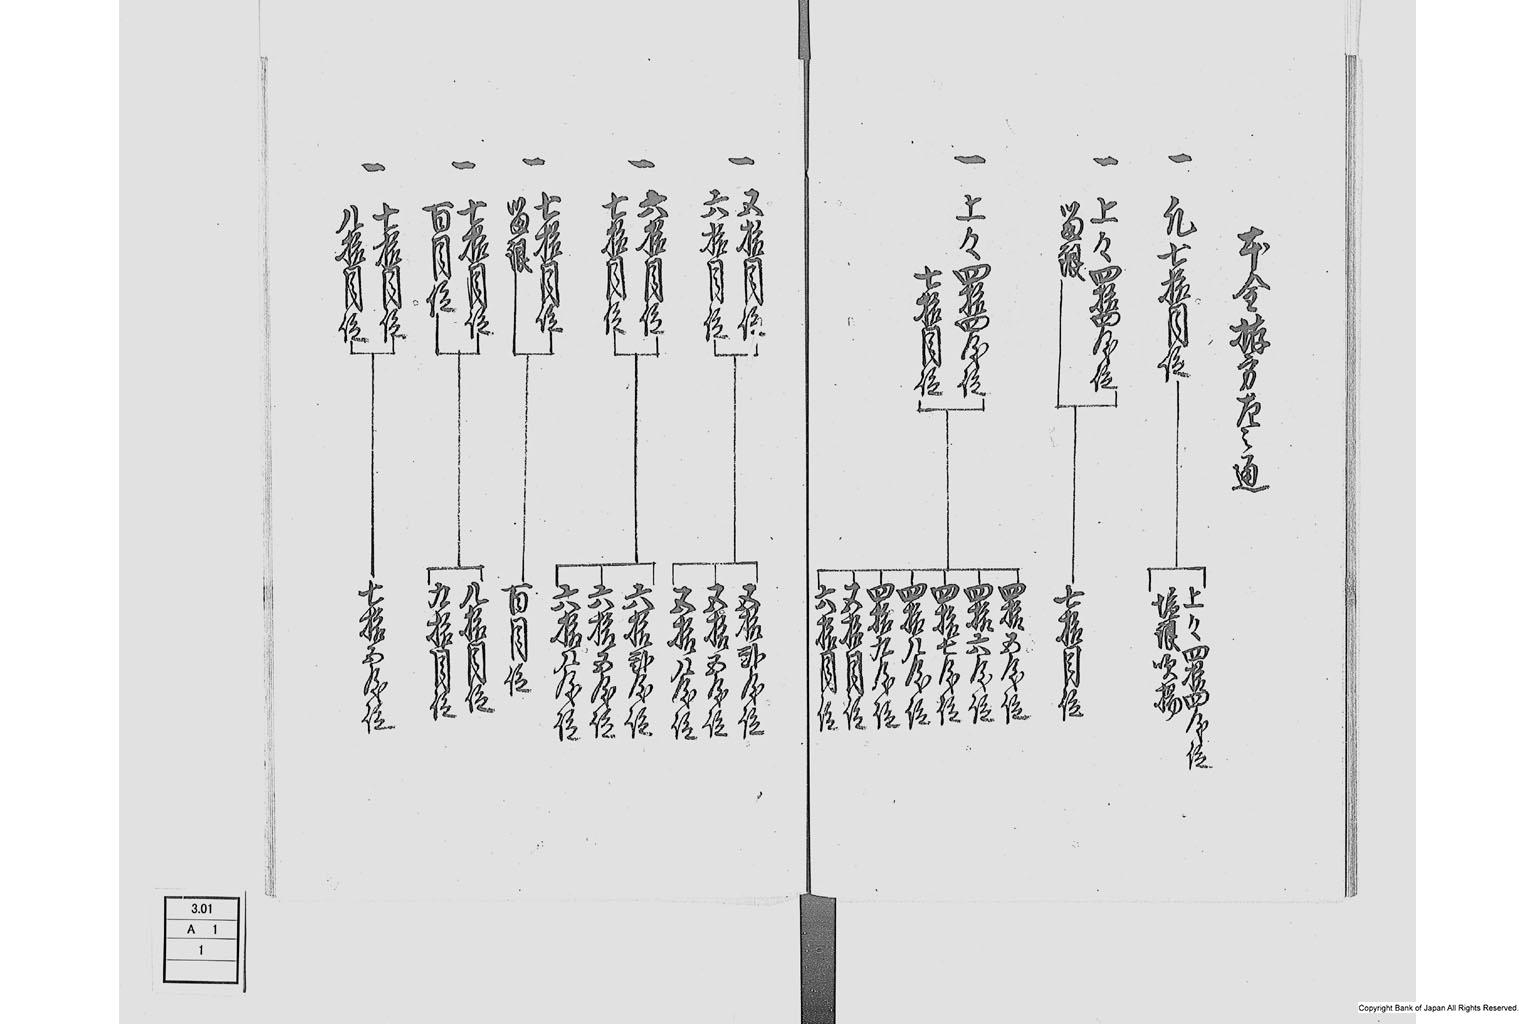 本金拵方左之通
一 凡七拾目位
上々四拾四匁位
塩銀吹揚
一 上々四拾四匁位
留銀
七拾目位
一 上々四拾四匁位
七拾目位
四拾五匁位
四拾六匁位
四拾七匁位
四拾八匁位
四拾九匁位
五拾目位
六拾目位
一 五拾目位
六拾目位
五拾弐匁位
五拾五匁位
五拾八匁位
一 六拾目位
七拾目位
六拾弐匁位
六拾五匁位
六拾八匁位
一 七拾目位
留銀
百目位
一 七拾目位
百目位
八拾目位
九拾目位
一 七拾目位
八拾目位
七拾五匁位
3.01
A 1
1
Copyright Bank of Japan All Rights Reserved.